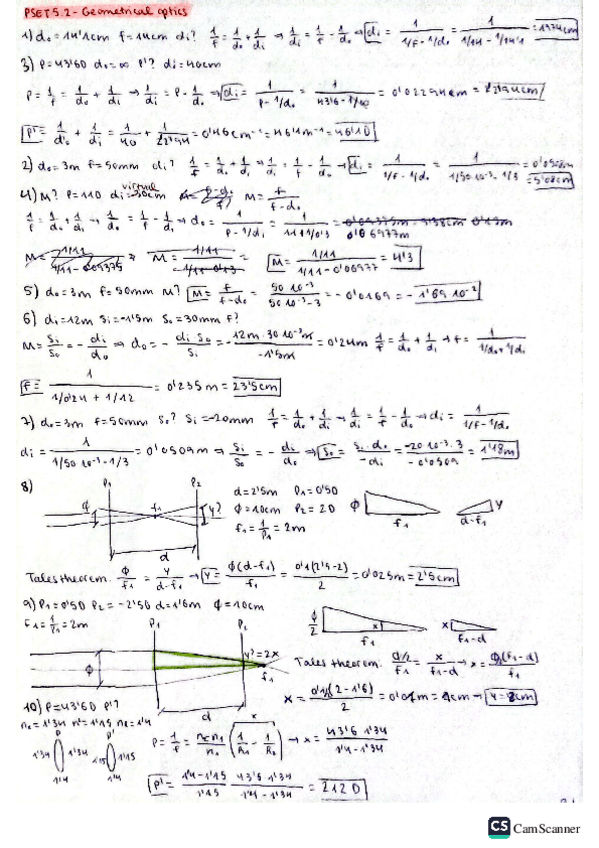 PSET 5.2 - Geometrical optics
1) d₀ = 14'1cm f = 14cm di? 1/f = 1/d₀ + 1/di → 1/di = 1/f - 1/d₀ → di = 1/(1/f - 1/d₀) = 1/(1/14 - 1/14'1) = 1974cm
3) P = 43'6D d₀ = ∞ P'? di = 40cm
P = 1/f = 1/d₀ + 1/di → 1/di = P - 1/d₀ → di = 1/(P - 1/d₀) = 1/(43'6 - 1/∞) = 0'02294cm = 2'294cm
P' = 1/d'₀ + 1/di = 1/40 + 1/2'294 = 0'46cm⁻¹ = 46'1m⁻¹ = 46'1D
2) d₀ = 3m f = 50mm di? 1/f = 1/d₀ + 1/di → 1/di = 1/f - 1/d₀ → di = 1/(1/f - 1/d₀) = 1/(1/50·10⁻³ - 1/3) = 0'0508m = 5'08cm
virtual
4) M? P = 110 di = 30cm M = f/(f-d₀)
1/f = 1/d₀ + 1/di → 1/d₀ = 1/f - 1/di → d₀ = 1/(P - 1/di) =
0'06977m
M = (1/11)/(1/11 - 0'06977) = 4'3
5) d₀ = 3m f = 50mm M? M = f/(f-d₀) = 50·10⁻³/(50·10⁻³ - 3) = -0'0169 = -1'69·10⁻²
6) di = 12m Si = -1'5m S₀ = 30mm f?
M = Si/S₀ = -di/d₀ → d₀ = -di S₀/Si = -12m·30·10⁻³m/-1'5m = 0'24m 1/f = 1/d₀ + 1/di → f = 1/(1/d₀ + 1/di)
f = 1/(1/0'24 + 1/12) = 0'235m = 23'5cm
7) d₀ = 3m f = 50mm S₀? Si = -20mm 1/f = 1/d₀ + 1/di → 1/di = 1/f - 1/d₀ → di = 1/(1/f - 1/d₀)
di = 1/(1/50·10⁻³ - 1/3) = 0'0509m → Si/S₀ = -di/d₀ → S₀ = Si·d₀/-di = -20·10⁻³·3/-0'0509 = 1'18m
8) P₁ P₂ ϕ f₁ y? d
d = 2'5m P₁ = 0'5D
ϕ = 10cm P₂ = 2D
f₁ = 1/P₁ = 2m
ϕ f₁ d-f₁ y
Tales theorem: ϕ/f₁ = y/(d-f₁) → y = ϕ(d-f₁)/f₁ = 0'1(2'5-2)/2 = 0'025m = 2'5cm
9) P₁ = 0'5D P₂ = -2'5D d = 1'6m ϕ = 10cm
f₁ = 1/P₁ = 2m
P₁ P₂ ϕ y? = 2x f₁ d
ϕ/2 x f₁ x f₁-d
Tales theorem: (ϕ/2)/f₁ = x/(f₁-d) → x = ϕ/2(f₁-d)/f₁
x = 0'1/2(2-1'6)/2 = 0'01m =
10) P = 43'6D P'?
P P'
1'34 1'34 1'15 1'15
1'4 1'4
x
→ x = 43'6·1'34/(1'4-1'34)
P' = (1'4-1'15)/1'15 · 43'6·1'34/(1'4-1'34) = 212D
CS CamScanner